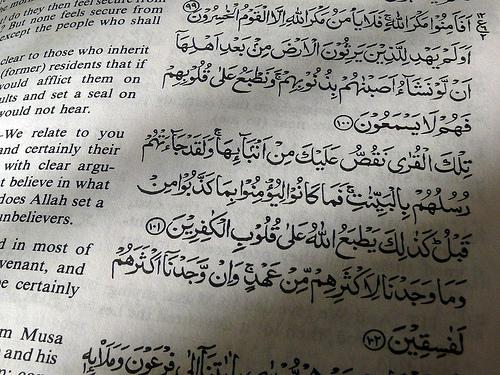 do they then feel secure from
But none feels secure from
except the people who shall
clear to those who inherit
(former) residents that if
would afflict them on
ults and set a seal on
would not hear.
-We relate to you
and certainly their
with clear argu-
t believe in what
does Allah set a
unbelievers.
d in most of
venant, and
e certainly
m Musa
and his
أَفَأَمِنُوا مَكْرَ اللهِ ۚ فَلَا يَأْمَنُ مَكْرَ اللهِ إِلَّا الْقَوْمُ الْخٰسِرُونَ ﴿٩٩﴾
أَوَلَمْ يَهْدِ لِلَّذِينَ يَرِثُونَ الْأَرْضَ مِنْ بَعْدِ أَهْلِهَا
أَنْ لَّوْ نَشَاءُ أَصَبْنٰهُمْ بِذُنُوبِهِمْ ۚ وَنَطْبَعُ عَلٰى قُلُوبِهِمْ
فَهُمْ لَا يَسْمَعُونَ ﴿١٠٠﴾
تِلْكَ الْقُرٰى نَقُصُّ عَلَيْكَ مِنْ أَنْبَائِهَا ۚ وَلَقَدْ جَاءَتْهُمْ
رُسُلُهُمْ بِالْبَيِّنٰتِ ۚ فَمَا كَانُوا لِيُؤْمِنُوا بِمَا كَذَّبُوا مِنْ
قَبْلُ ۚ كَذٰلِكَ يَطْبَعُ اللهُ عَلٰى قُلُوبِ الْكٰفِرِينَ ﴿١٠١﴾
وَمَا وَجَدْنَا لِأَكْثَرِهِمْ مِّنْ عَهْدٍ ۚ وَإِنْ وَّجَدْنَا أَكْثَرَهُمْ
لَفٰسِقِينَ ﴿١٠٢﴾
إِلٰى فِرْعَوْنَ وَمَلَائِهِ